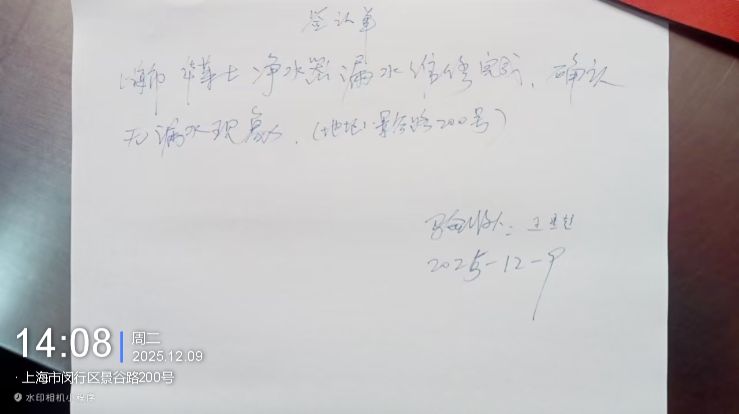 签认单
净水器漏水维修完成，确认
无漏水现象。(地址：景谷路200号)
2025-12-9
14:08
周二
2025.12.09
·上海市闵行区景谷路200号
水印相机小程序